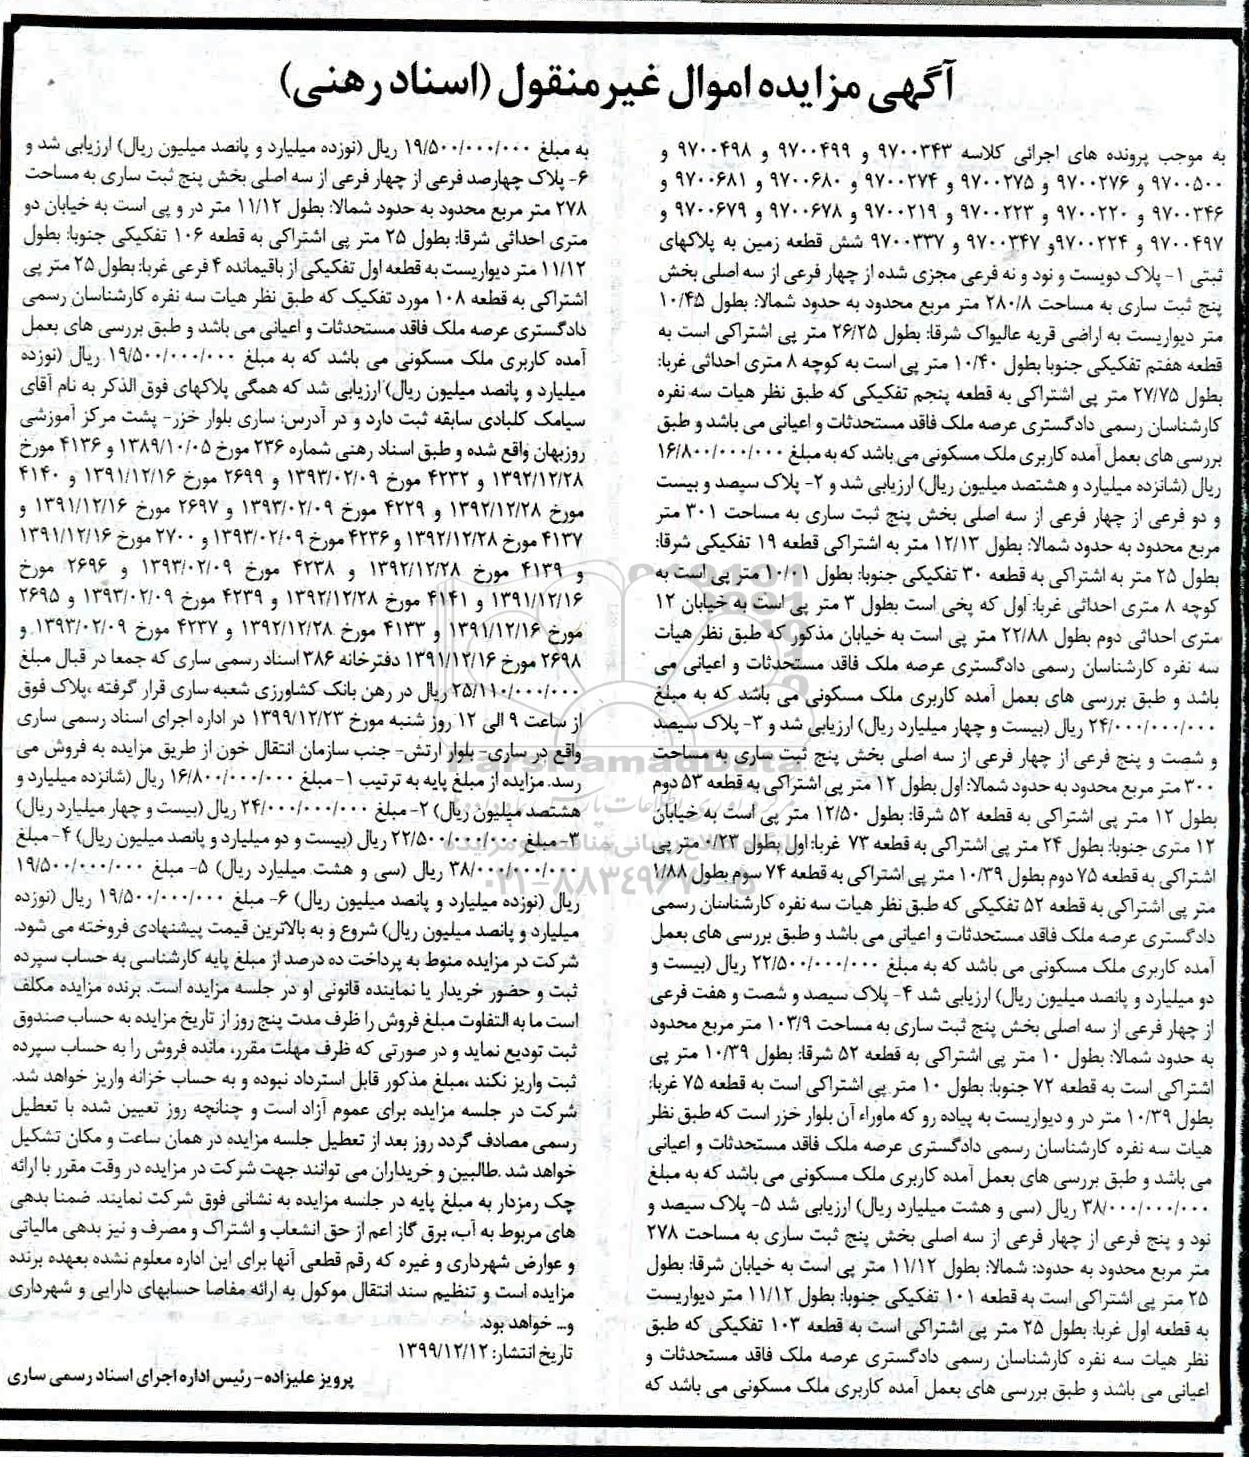 آگهی مزایده اموال غیرمنقول (اسناد رهنی)
به موجب پرونده های اجرائی کلاسه ۹۷۰۰۳۴۳ و ۹۷۰۰۴۹۹ و ۹۷۰۰۴۹۸ و
۹۷۰۰۵۰۰ و ۹۷۰۰۲۷۶ و ۹۷۰۰۲۷۵ و ۹۷۰۰۲۷۴ و ۹۷۰۰۶۸۰ و ۹۷۰۰۶۸۱ و
۹۷۰۰۳۴۶ و ۹۷۰۰۲۲۰ و ۹۷۰۰۲۲۳ و ۹۷۰۰۲۱۹ و ۹۷۰۰۶۷۸ و ۹۷۰۰۶۷۹ و
۹۷۰۰۴۹۷ و ۹۷۰۰۲۲۴و ۹۷۰۰۳۴۷ و ۹۷۰۰۳۳۷ شش قطعه زمین به پلاکهای
ثبتی ۱- پلاک دویست و نود و نه فرعی مجزی شده از چهار فرعی از سه اصلی بخش
پنج ثبت ساری به مساحت ۲۸۰/۸ متر مربع محدود به حدود شمالا: بطول ۱۰/۴۵
متر دیواریست به اراضی قریه عالیواک شرقا: بطول ۲۶/۲۵ متر پی اشتراکی است به
قطعه هفتم تفکیکی جنوبا بطول ۱۰/۴۰ متر پی است به کوچه ۸ متری احداثی غربا:
بطول ۲۷/۷۵ متر پی اشتراکی به قطعه پنجم تفکیکی که طبق نظر هیات سه نفره
کارشناسان رسمی دادگستری عرصه ملک فاقد مستحدثات و اعیانی می باشد و طبق
بررسی های بعمل آمده کاربری ملک مسکونی می باشد که به مبلغ ۱۶/۸۰۰/۰۰۰/۰۰۰
ریال (شانزده میلیارد و هشتصد میلیون ریال) ارزیابی شد و ۲- پلاک سیصد و بیست
و دو فرعی از چهار فرعی از سه اصلی بخش پنج ثبت ساری به مساحت ۳۰۱ متر
مربع محدود به حدود شمالا: بطول ۱۲/۱۳ متر به اشتراکی قطعه ۱۹ تفکیکی شرقا:
بطول ۲۵ متر به اشتراکی به قطعه ۳۰ تفکیکی جنوبا: بطول ۱۰/۰۱ متر پی است به
کوچه ۸ متری احداثی غربا: اول که پخی است بطول ۳ متر پی است به خیابان ۱۲
متری احداثی دوم بطول ۲۲/۸۸ متر پی است به خیابان مذکور که طبق نظر هیات
سه نفره کارشناسان رسمی دادگستری عرصه ملک فاقد مستحدثات و اعیانی می
باشد و طبق بررسی های بعمل آمده کاربری ملک مسکونی می باشد که به مبلغ
۲۴/۰۰۰/۰۰۰/۰۰۰ ریال (بیست و چهار میلیارد ریال) ارزیابی شد و ۳- پلاک سیصد
و شصت و پنج فرعی از چهار فرعی از سه اصلی بخش پنج ثبت ساری به مساحت
۳۰۰ متر مربع محدود به حدود شمالا: اول بطول ۱۲ متر پی اشتراکی به قطعه ۵۳ دوم
بطول ۱۲ متر پی اشتراکی به قطعه ۵۲ شرقا: بطول ۱۲/۵۰ متر پی است به خیابان
۱۲ متری جنوبا: بطول ۲۴ متر پی اشتراکی به قطعه ۷۳ غربا: اول بطول ۰/۲۳ متر پی
اشتراکی به قطعه ۷۵ دوم بطول ۱۰/۳۹ متر پی اشتراکی به قطعه ۷۴ سوم بطول ۱/۸۸
متر پی اشتراکی به قطعه ۵۲ تفکیکی که طبق نظر هیات سه نفره کارشناسان رسمی
دادگستری عرصه ملک فاقد مستحدثات و اعیانی می باشد و طبق بررسی های بعمل
آمده کاربری ملک مسکونی می باشد که به مبلغ ۲۲/۵۰۰/۰۰۰/۰۰۰ ریال (بیست و
دو میلیارد و پانصد میلیون ریال) ارزیابی شد ۴- پلاک سیصد و شصت و هفت فرعی
از چهار فرعی از سه اصلی بخش پنج ثبت ساری به مساحت ۱۰۳/۹ متر مربع محدود
به حدود شمالا: بطول ۱۰ متر پی اشتراکی به قطعه ۵۲ شرقا: بطول ۱۰/۳۹ متر پی
اشتراکی است به قطعه ۷۲ جنوبا: بطول ۱۰ متر پی اشتراکی است به قطعه ۷۵ غربا:
بطول ۱۰/۳۹ متر در و دیواریست به پیاده رو که ماوراء آن بلوار خزر است که طبق نظر
هیات سه نفره کارشناسان رسمی دادگستری عرصه ملک فاقد مستحدثات و اعیانی
می باشد و طبق بررسی های بعمل آمده کاربری ملک مسکونی می باشد که به مبلغ
۳۸/۰۰۰/۰۰۰/۰۰۰ ریال (سی و هشت میلیارد ریال) ارزیابی شد ۵- پلاک سیصد و
نود و پنج فرعی از چهار فرعی از سه اصلی بخش پنج ثبت ساری به مساحت ۲۷۸
متر مربع محدود به حدود: شمالا: بطول ۱۱/۱۲ متر پی است به خیابان شرقا: بطول
۲۵ متر پی اشتراکی است به قطعه ۱۰۱ تفکیکی جنوبا: بطول ۱۱/۱۲ متر دیواریست
به قطعه اول غربا: بطول ۲۵ متر پی اشتراکی است به قطعه ۱۰۳ تفکیکی که طبق
نظر هیات سه نفره کارشناسان رسمی دادگستری عرصه ملک فاقد مستحدثات و
اعیانی می باشد و طبق بررسی های بعمل آمده کاربری ملک مسکونی می باشد که
به مبلغ ۱۹/۵۰۰/۰۰۰/۰۰۰ ریال (نوزده میلیارد و پانصد میلیون ریال) ارزیابی شد و
۶- پلاک چهارصد فرعی از چهار فرعی از سه اصلی بخش پنج ثبت ساری به مساحت
۲۷۸ متر مربع محدود به حدود شمالا: بطول ۱۱/۱۲ متر در و پی است به خیابان دو
متری احداثی شرقا: بطول ۲۵ متر پی اشتراکی به قطعه ۱۰۶ تفکیکی جنوبا: بطول
۱۱/۱۲ متر دیواریست به قطعه اول تفکیکی از باقیمانده ۴ فرعی غربا: بطول ۲۵ متر پی
اشتراکی به قطعه ۱۰۸ مورد تفکیک که طبق نظر هیات سه نفره کارشناسان رسمی
دادگستری عرصه ملک فاقد مستحدثات و اعیانی می باشد و طبق بررسی های بعمل
آمده کاربری ملک مسکونی می باشد که به مبلغ ۱۹/۵۰۰/۰۰۰/۰۰۰ ریال (نوزده
میلیارد و پانصد میلیون ریال) ارزیابی شد که همگی پلاکهای فوق الذکر به نام آقای
سیامک کلبادی سابقه ثبت دارد و در آدرس: ساری بلوار خزر- پشت مرکز آموزشی
روزبهان واقع شده و طبق اسناد رهنی شماره ۲۳۶ مورخ ۱۳۸۹/۱۰/۰۵ و ۴۱۳۶ مورخ
۱۳۹۲/۱۲/۲۸ و ۴۲۳۲ مورخ ۱۳۹۳/۰۲/۰۹ و ۲۶۹۹ مورخ ۱۳۹۱/۱۲/۱۶ و ۴۱۴۰
مورخ ۱۳۹۲/۱۲/۲۸ و ۴۲۲۹ مورخ ۱۳۹۳/۰۲/۰۹ و ۲۶۹۷ مورخ ۱۳۹۱/۱۲/۱۶ و
۴۱۳۷ مورخ ۱۳۹۲/۱۲/۲۸ و ۴۲۳۶ مورخ ۱۳۹۳/۰۲/۰۹ و ۲۷۰۰ مورخ ۱۳۹۱/۱۲/۱۶
و ۴۱۳۹ مورخ ۱۳۹۲/۱۲/۲۸ و ۴۲۳۸ مورخ ۱۳۹۳/۰۲/۰۹ و ۲۶۹۶ مورخ
۱۳۹۱/۱۲/۱۶ و ۴۱۴۱ مورخ ۱۳۹۲/۱۲/۲۸ و ۴۲۳۹ مورخ ۱۳۹۳/۰۲/۰۹ و ۲۶۹۵
مورخ ۱۳۹۱/۱۲/۱۶ و ۴۱۳۳ مورخ ۱۳۹۲/۱۲/۲۸ و ۴۲۳۷ مورخ ۱۳۹۳/۰۲/۰۹ و
۲۶۹۸ مورخ ۱۳۹۱/۱۲/۱۶ دفترخانه ۳۸۶ اسناد رسمی ساری که جمعا در قبال مبلغ
۲۵/۱۱۰/۰۰۰/۰۰۰ ریال در رهن بانک کشاورزی شعبه ساری قرار گرفته ،پلاک فوق
از ساعت ۹ الی ۱۲ روز شنبه مورخ ۱۳۹۹/۱۲/۲۳ در اداره اجرای اسناد رسمی ساری
واقع در ساری- بلوار ارتش- جنب سازمان انتقال خون از طریق مزایده به فروش می
رسد. مزایده از مبلغ پایه به ترتیب ۱- مبلغ ۱۶/۸۰۰/۰۰۰/۰۰۰ ریال (شانزده میلیارد و
هشتصد میلیون ریال) ۲- مبلغ ۲۴/۰۰۰/۰۰۰/۰۰۰ ریال (بیست و چهار میلیارد ریال)
۳- مبلغ ۲۲/۵۰۰/۰۰۰/۰۰۰ ریال (بیست و دو میلیارد و پانصد میلیون ریال) ۴- مبلغ
۳۸/۰۰۰/۰۰۰/۰۰۰ ریال (سی و هشت میلیارد ریال) ۵- مبلغ ۱۹/۵۰۰/۰۰۰/۰۰۰
ریال (نوزده میلیارد و پانصد میلیون ریال) ۶- مبلغ ۱۹/۵۰۰/۰۰۰/۰۰۰ ریال (نوزده
میلیارد و پانصد میلیون ریال) شروع و به بالاترین قیمت پیشنهادی فروخته می شود.
شرکت در مزایده منوط به پرداخت ده درصد از مبلغ پایه کارشناسی به حساب سپرده
ثبت و حضور خریدار یا نماینده قانونی او در جلسه مزایده است. برنده مزایده مکلف
است ما به التفاوت مبلغ فروش را ظرف مدت پنج روز از تاریخ مزایده به حساب صندوق
ثبت تودیع نماید و در صورتی که ظرف مهلت مقرر، مانده فروش را به حساب سپرده
ثبت واریز نکند ،مبلغ مذکور قابل استرداد نبوده و به حساب خزانه واریز خواهد شد.
شرکت در جلسه مزایده برای عموم آزاد است و چنانچه روز تعیین شده با تعطیل
رسمی مصادف گردد روز بعد از تعطیل جلسه مزایده در همان ساعت و مکان تشکیل
خواهد شد .طالبین و خریداران می توانند جهت شرکت در مزایده در وقت مقرر با ارائه
چک رمزدار به مبلغ پایه در جلسه مزایده به نشانی فوق شرکت نمایند. ضمنا بدهی
های مربوط به آب، برق گاز اعم از حق انشعاب و اشتراک و مصرف و نیز بدهی مالیاتی
و عوارض شهرداری و غیره که رقم قطعی آنها برای این اداره معلوم نشده بعهده برنده
مزایده است و تنظیم سند انتقال موکول به ارائه مفاصا حسابهای دارایی و شهرداری
و... خواهد بود.
تاریخ انتشار: ۱۳۹۹/۱۲/۱۲
پرویز علیزاده- رئیس اداره اجرای اسناد رسمی ساری
ParsNamadData
۰۲۱-۸۸۳۴۹۶۷۰-۵